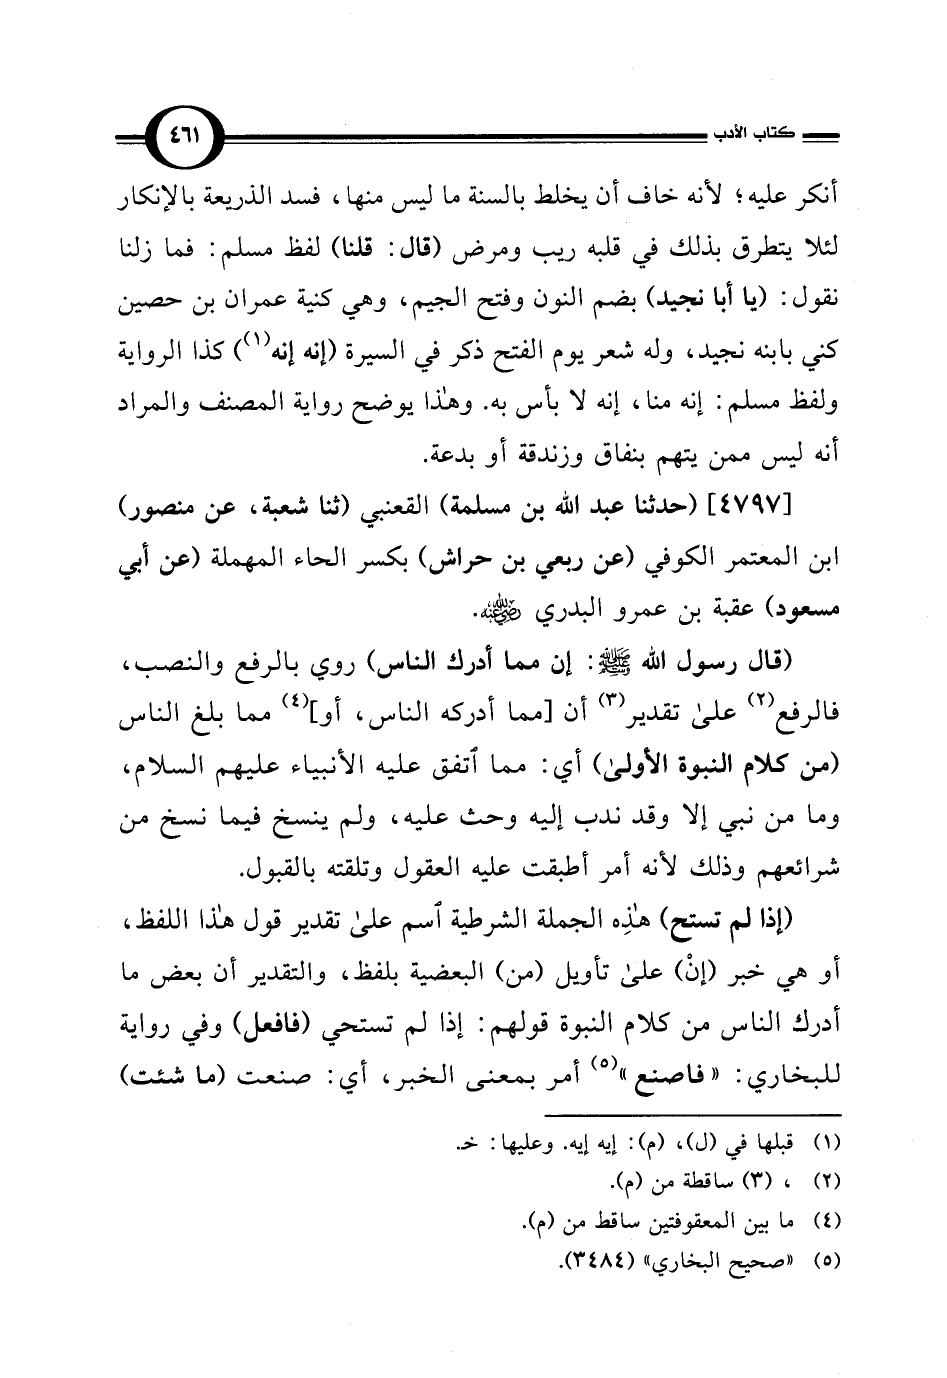 كتاب الأدب ٤٦١
أنكر عليه؛ لأنه خاف أن يخلط بالسنة ما ليس منها، فسد الذريعة بالإنكار
لئلا يتطرق بذلك في قلبه ريب ومرض (قال: قلنا) لفظ مسلم: فما زلنا
نقول: (يا أبا نجيد) بضم النون وفتح الجيم، وهي كنية عمران بن حصين
كني بابنه نجيد، وله شعر يوم الفتح ذكر في السيرة (إنه إنه(١)) كذا الرواية
ولفظ مسلم: إنه منا، إنه لا بأس به. وهذا يوضح رواية المصنف والمراد
أنه ليس ممن يتهم بنفاق وزندقة أو بدعة.
[٤٧٩٧] (حدثنا عبد الله بن مسلمة) القعنبي (ثنا شعبة، عن منصور)
ابن المعتمر الكوفي (عن ربعي بن حراش) بكسر الحاء المهملة (عن أبي
مسعود) عقبة بن عمرو البدري رضي الله عنه.
(قال رسول الله ﷺ: إن مما أدرك الناس) روي بالرفع والنصب،
فالرفع(٢) علىٰ تقدير(٣) أن [مما أدركه الناس، أو](٤) مما بلغ الناس
(من كلام النبوة الأولىٰ) أي: مما ٱتفق عليه الأنبياء عليهم السلام،
وما من نبي إلا وقد ندب إليه وحث عليه، ولم ينسخ فيما نسخ من
شرائعهم وذلك لأنه أمر أطبقت عليه العقول وتلقته بالقبول.
(إذا لم تستح) هٰذِه الجملة الشرطية ٱسم علىٰ تقدير قول هٰذا اللفظ،
أو هي خبر (إنْ) علىٰ تأويل (من) البعضية بلفظ، والتقدير أن بعض ما
أدرك الناس من كلام النبوة قولهم: إذا لم تستحي (فافعل) وفي رواية
للبخاري: «فاصنع»(٥) أمر بمعنى الخبر، أي: صنعت (ما شئت)
(١) قبلها في (ل)، (م): إيه إيه. وعليها: خـ.
(٢) ، (٣) ساقطة من (م).
(٤) ما بين المعقوفتين ساقط من (م).
(٥) «صحيح البخاري» (٣٤٨٤).